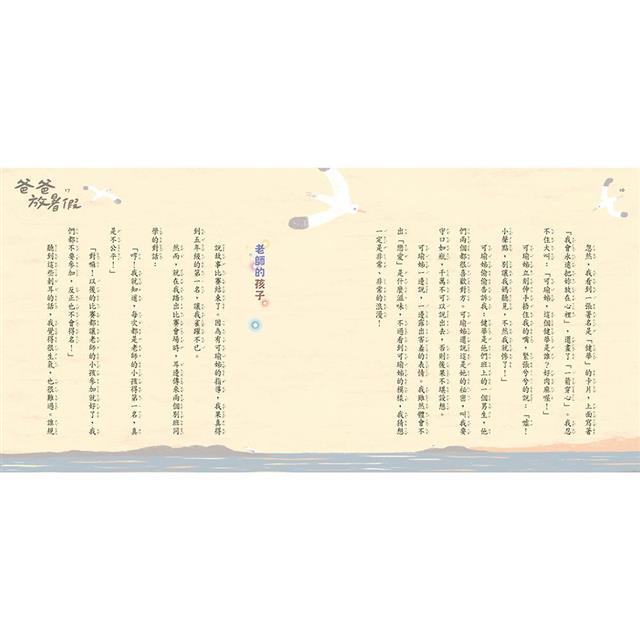 忽然，我看到一張署名是「健華」的卡片，上面寫著
「我會永遠把妳放在心裡」，還畫了「一箭穿心」。我忍
不住大叫：「可瑜姊，這個健華是誰？好肉麻喔！」
可瑜姊立刻伸手摀住我的嘴，緊張兮兮的說：「噓！
小聲點，別讓我媽聽見，不然我就慘了！」
可瑜姊偷偷告訴我：健華是他們班上的一個男生，他
們兩個都很喜歡對方。可瑜姊還說這是她的祕密，叫我要
守口如瓶，千萬不可以說出去，否則後果不堪設想。
可瑜姊一邊說，一邊露出害羞的表情。我雖然體會不
出「戀愛」是什麼滋味，不過看到可瑜姊的模樣，我猜想
一定是非常、非常的浪漫！
老師的孩子
說故事比賽結束了。因為有可瑜姊的指導，我果真得
到五年級的第一名，讓我雀躍不已。
然而，就在我踏出比賽會場時，耳邊傳來兩個別班同
學的對話：
「哼！我就知道，每次都是老師的小孩得第一名，真
是不公平！」
「對嘛！以後的比賽都讓老師的小孩參加就好了，我
們都不要參加，反正也不會得名！」
聽到這些刺耳的話，我覺得很生氣，也很難過。誰規
爸爸
放暑假